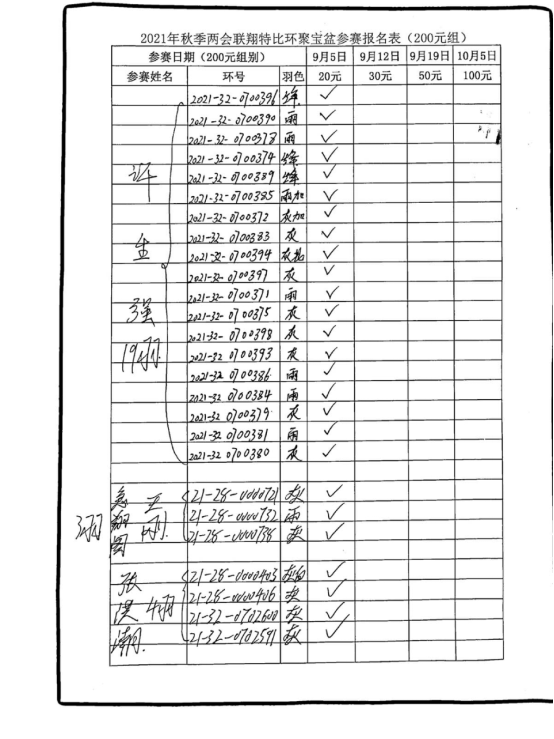 2021年秋季两会联翔特比环聚宝盆参赛报名表（200元组）
参赛日期（200元组别） 9月5日 9月12日 9月19日 10月5日
参赛姓名 环号 羽色 20元 30元 50元 100元
2021-32-0700396 绛 ✓
2021-32-0700390 雨 ✓
2021-32-0700378 雨 ✓
2021-32-0700374 绛 ✓
许 2021-32-0700389 绛 ✓
2021-32-0700385 雨加 ✓
2021-32-0700372 灰加 ✓
生 2021-32-0700383 灰 ✓
2021-32-0700394 灰 ✓
2021-32-0700397 灰 ✓
2021-32-0700371 雨 ✓
强 2021-32-0700375 灰 ✓
2021-32-0700398 灰 ✓
19羽 2021-32 0700393 灰 ✓
2021-32 0700386 雨 ✓
2021-32 0700384 雨 ✓
2021-32 0700379 灰 ✓
2021-32 0700381 雨 ✓
2021-32 0700380 灰 ✓
21-28-0000721 灰 ✓
3羽 21-28-0000732 雨 ✓
21-28-0000738 灰 ✓
张 21-28-0000403 灰 ✓
4羽 21-28-0000406 灰 ✓
21-32-0702600 灰 ✓
潮 21-32-0702591 灰 ✓